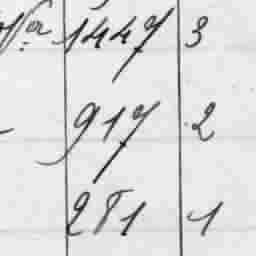 1447 3
917 2
281 1